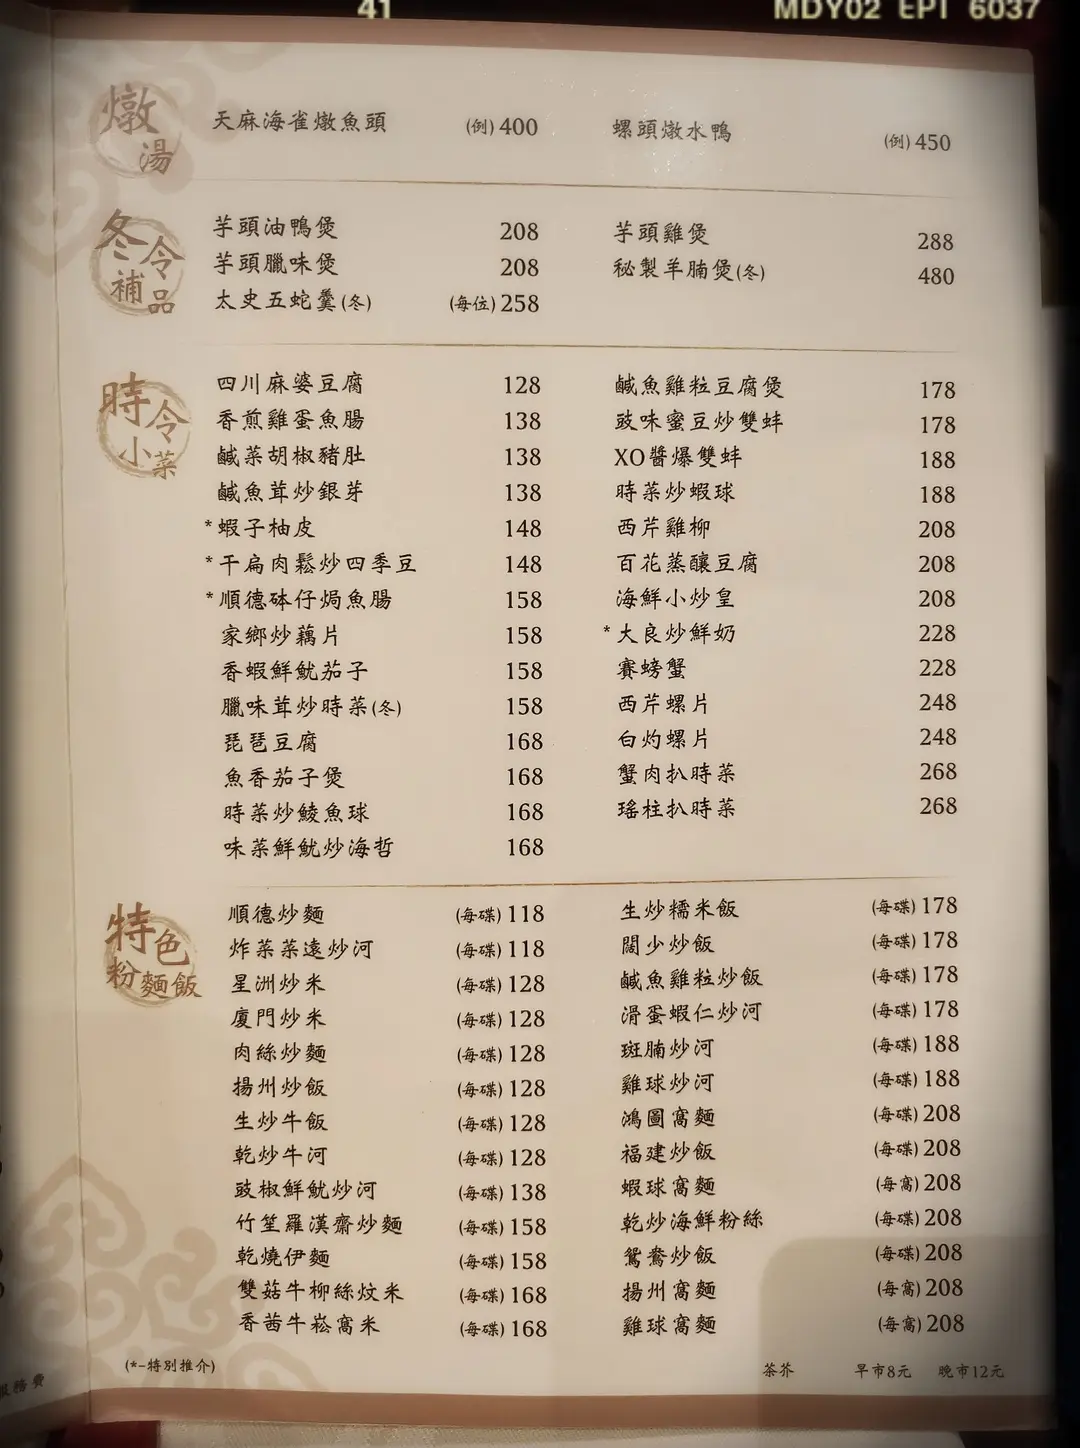 41
MDY02 EPI 6037
燉湯
天麻海雀燉魚頭 (例) 400
螺頭燉水鴨 (例) 450
冬令補品
芋頭油鴨煲 208
芋頭臘味煲 208
太史五蛇羹(冬) (每位) 258
芋頭雞煲 288
秘製羊腩煲(冬) 480
時令小菜
四川麻婆豆腐 128
香煎雞蛋魚腸 138
鹹菜胡椒豬肚 138
鹹魚茸炒銀芽 138
*蝦子柚皮 148
*干扁肉鬆炒四季豆 148
*順德砵仔焗魚腸 158
家鄉炒藕片 158
香蝦鮮魷茄子 158
臘味茸炒時菜(冬) 158
琵琶豆腐 168
魚香茄子煲 168
時菜炒鯪魚球 168
味菜鮮魷炒海哲 168
鹹魚雞粒豆腐煲 178
豉味蜜豆炒雙蚌 178
XO醬爆雙蚌 188
時菜炒蝦球 188
西芹雞柳 208
百花蒸釀豆腐 208
海鮮小炒皇 208
*大良炒鮮奶 228
賽螃蟹 228
西芹螺片 248
白灼螺片 248
蟹肉扒時菜 268
瑤柱扒時菜 268
特色粉麵飯
順德炒麵 (每碟) 118
炸菜菜遠炒河 (每碟) 118
星洲炒米 (每碟) 128
廈門炒米 (每碟) 128
肉絲炒麵 (每碟) 128
揚州炒飯 (每碟) 128
生炒牛飯 (每碟) 128
乾炒牛河 (每碟) 128
豉椒鮮魷炒河 (每碟) 138
竹笙羅漢齋炒麵 (每碟) 158
乾燒伊麵 (每碟) 158
雙菇牛柳絲炆米 (每碟) 168
香茜牛崧窩米 (每碟) 168
生炒糯米飯 (每碟) 178
闊少炒飯 (每碟) 178
鹹魚雞粒炒飯 (每碟) 178
滑蛋蝦仁炒河 (每碟) 178
斑腩炒河 (每碟) 188
雞球炒河 (每碟) 188
鴻圖窩麵 (每碟) 208
福建炒飯 (每碟) 208
蝦球窩麵 (每窩) 208
乾炒海鮮粉絲 (每碟) 208
鴛鴦炒飯 (每碟) 208
揚州窩麵 (每窩) 208
雞球窩麵 (每窩) 208
(*-特別推介)
茶芥 早市8元 晚市12元
服務費